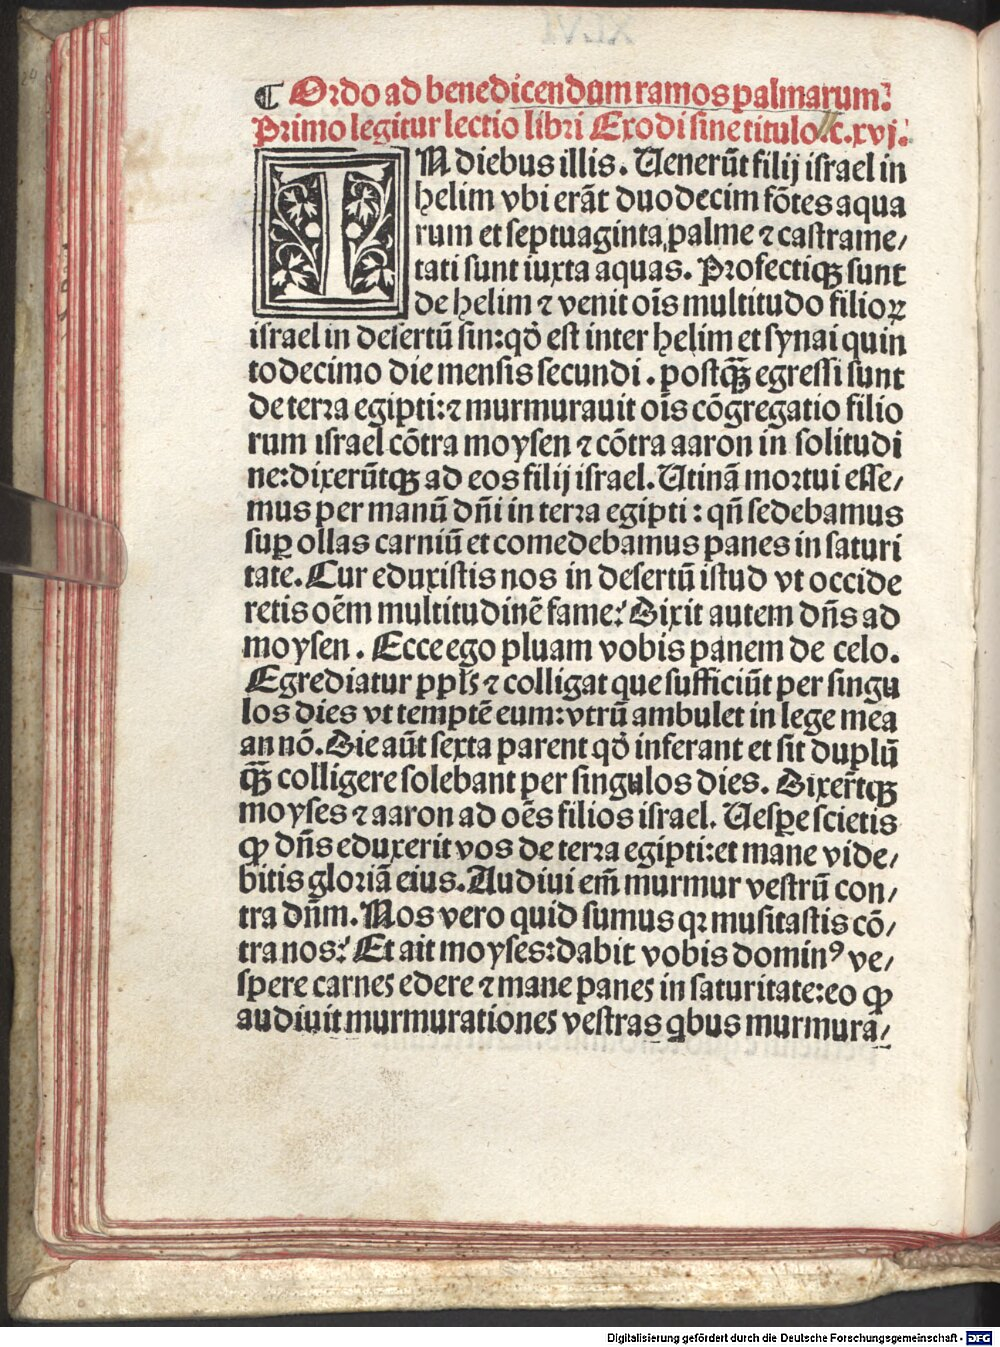 ¶ Ordo ad benedicendum ramos palmarum:
Primo legitur lectio libri Exodi sine titulo. c. xvj.
IN diebus illis. Venerūt filij israel in
helim vbi erāt duodecim fōtes aqua
rum et septuaginta palme ⁊ castrame/
tati sunt iuxta aquas. Profectiqꝫ sunt
de helim ⁊ venit oīs multitudo filioꝝ
israel in desertū sin: qđ est inter helim et synai quin
todecimo die mensis secundi. postqꝫ̄ egressi sunt
de terra egipti: ⁊ murmurauit oīs cōgregatio filio
rum israel cōtra moysen ⁊ cōtra aaron in solitudi
ne: dixerūtqꝫ ad eos filij israel. Utinā mortui esse/
mus per manū dñi in terra egipti: qñ sedebamus
suꝑ ollas carniū et comedebamus panes in saturi
tate. Cur eduxistis nos in desertū istud vt occide
retis oēm multitudinē fame? Dixit autem dñs ad
moysen. Ecce ego pluam vobis panem de celo.
Egrediatur ppl̄s ⁊ colligat que sufficiūt per singu
los dies vt temptē eum: vtrū ambulet in lege mea
an nō. Die aūt sexta parent qđ inferant et sit duplū
qꝫ̄ colligere solebant per singulos dies. Dixer̄tqꝫ
moyses ⁊ aaron ad oēs filios israel. Uesꝑe scietis
ꝙ dñs eduxerit vos de terra egipti: et mane vide/
bitis gloriā eius. Audiui em̄ murmur vestrū con/
tra dñm. Nos vero quid sumus qꝛ musitastis cō/
tra nos? Et ait moyses: dabit vobis dominꝰ ve/
spere carnes edere ⁊ mane panes in saturitate: eo ꝙ
audiuit murmurationes vestras qbus murmura/
Digitalisierung gefördert durch die Deutsche Forschungsgemeinschaft - DFG